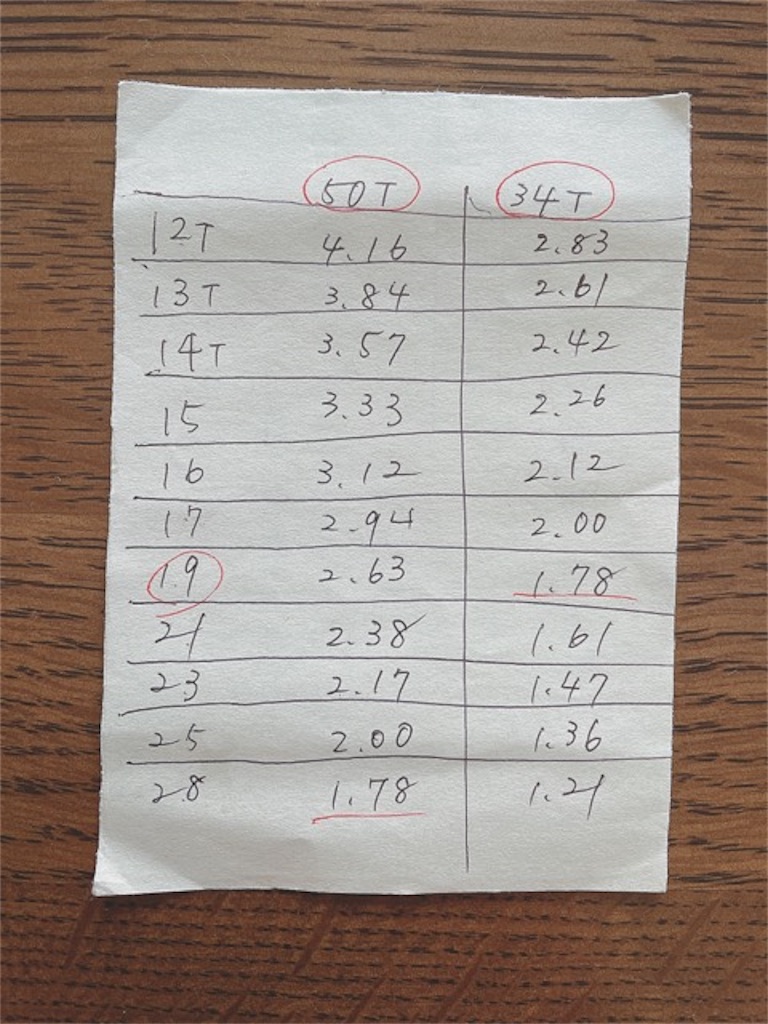 50T 34T
12T 4.16 2.83
13T 3.84 2.61
14T 3.57 2.42
15 3.33 2.26
16 3.12 2.12
17 2.94 2.00
19 2.63 1.78
21 2.38 1.61
23 2.17 1.47
25 2.00 1.36
28 1.78 1.21